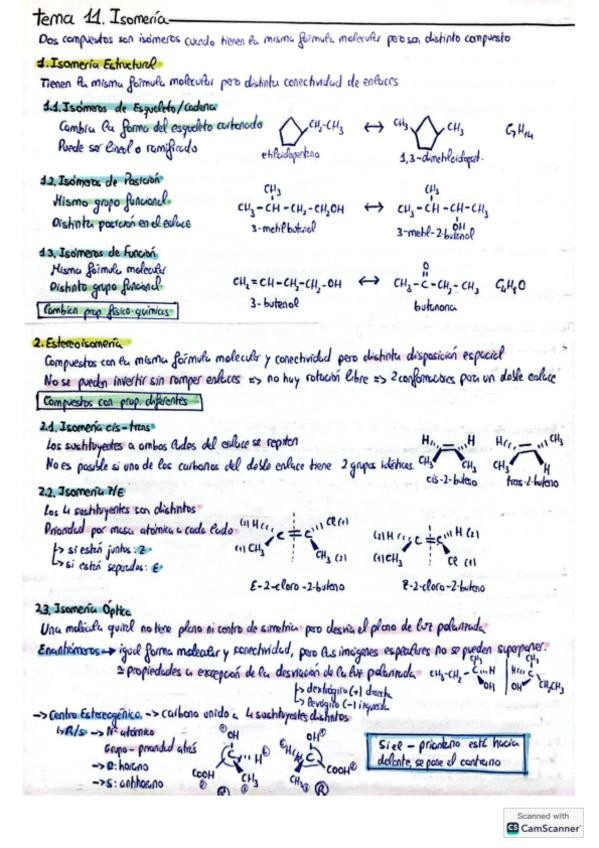 tema 11. Isomería
Dos compuestos son isómeros cuando tienen la misma fórmula molecular pero son distinto compuesto
1. Isomería Estructural
Tienen la misma fórmula molecular pero distinta conectividad de enlaces
1.1. Isómeros de Esqueleto/cadena
Cambia la forma del esqueleto carbonado
Puede ser lineal o ramificado
CH2-CH3 ↔ CH3 CH3 C7H14
etilciclopentano 1,3-dimetilciclopent.
1.2. Isómeros de Posición
Mismo grupo funcional
Distinta posición en el enlace
CH3 CH3
CH3-CH-CH2-CH2OH ↔ CH3-CH-CH-CH3
OH
3-metilbutanol 3-metil-2-butanol
1.3. Isómeros de Función
Misma fórmula molecular
Distinto grupo funcional
Cambian prop. físico-químicas
O
CH2=CH-CH2-CH2-OH ↔ CH3-C-CH2-CH3 C4H8O
3-butenol butanona
2. Estereoisomería
Compuestos con la misma fórmula molecular y conectividad pero distinta disposición espacial
No se pueden invertir sin romper enlaces => no hay rotación libre => 2 conformaciones para un doble enlace
Compuestos con prop. diferentes
2.1. Isomería cis-trans
Los sustituyentes a ambos lados del enlace se repiten
No es posible si uno de los carbonos del doble enlace tiene 2 grupos idénticos.
H H H CH3
CH3 CH3 CH3 H
cis-2-buteno trans-2-buteno
2.2. Isomería Z/E
Los 4 sustituyentes son distintos
Prioridad por masa atómica a cada lado
↳ si están juntos: Z
↳ si están separados: E
(2) H C = C Cl (1)
(1) CH3 CH3 (2)
E-2-cloro-2-buteno
(2) H C = C
(1) CH3 Cl (1)
Z-2-cloro-2-buteno
2.3. Isomería Óptica
Una molécula quiral no tiene plano ni centro de simetría pero desvía el plano de luz polarizada
Enantiómeros → igual forma molecular y conectividad, pero las imágenes especulares no se pueden superponer.
= propiedades a excepción de la desviación de la luz polarizada
↳ dextrógiro (+) derecha
↳ levógiro (-) izquierda
CH3-CH2 C H OH
H CH3 C OH CH2CH3
→ Centro Estereogénico → carbono unido a 4 sustituyentes distintos
↳ R/S → Nº atómico
Grupo - prioridad atrás
→ R: horario
→ S: antihorario
OH C H COOH CH3
OH H C CH3 COOH
R
Si el - prioritario está hacia
delante, se pone el contrario
Scanned with
CS CamScanner